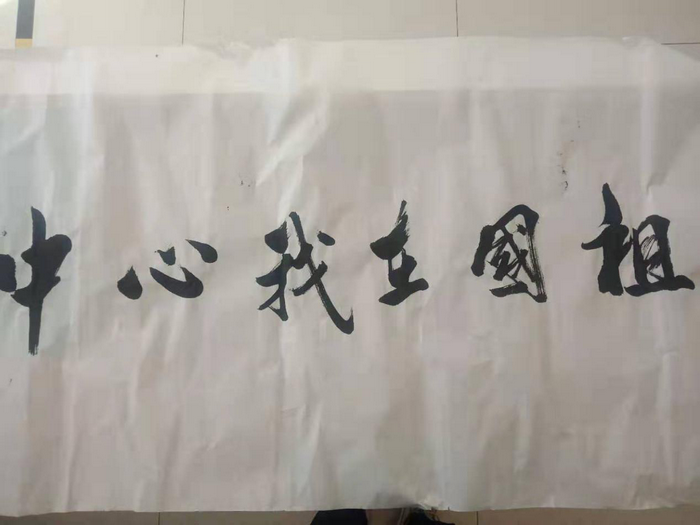 祖國在我心中